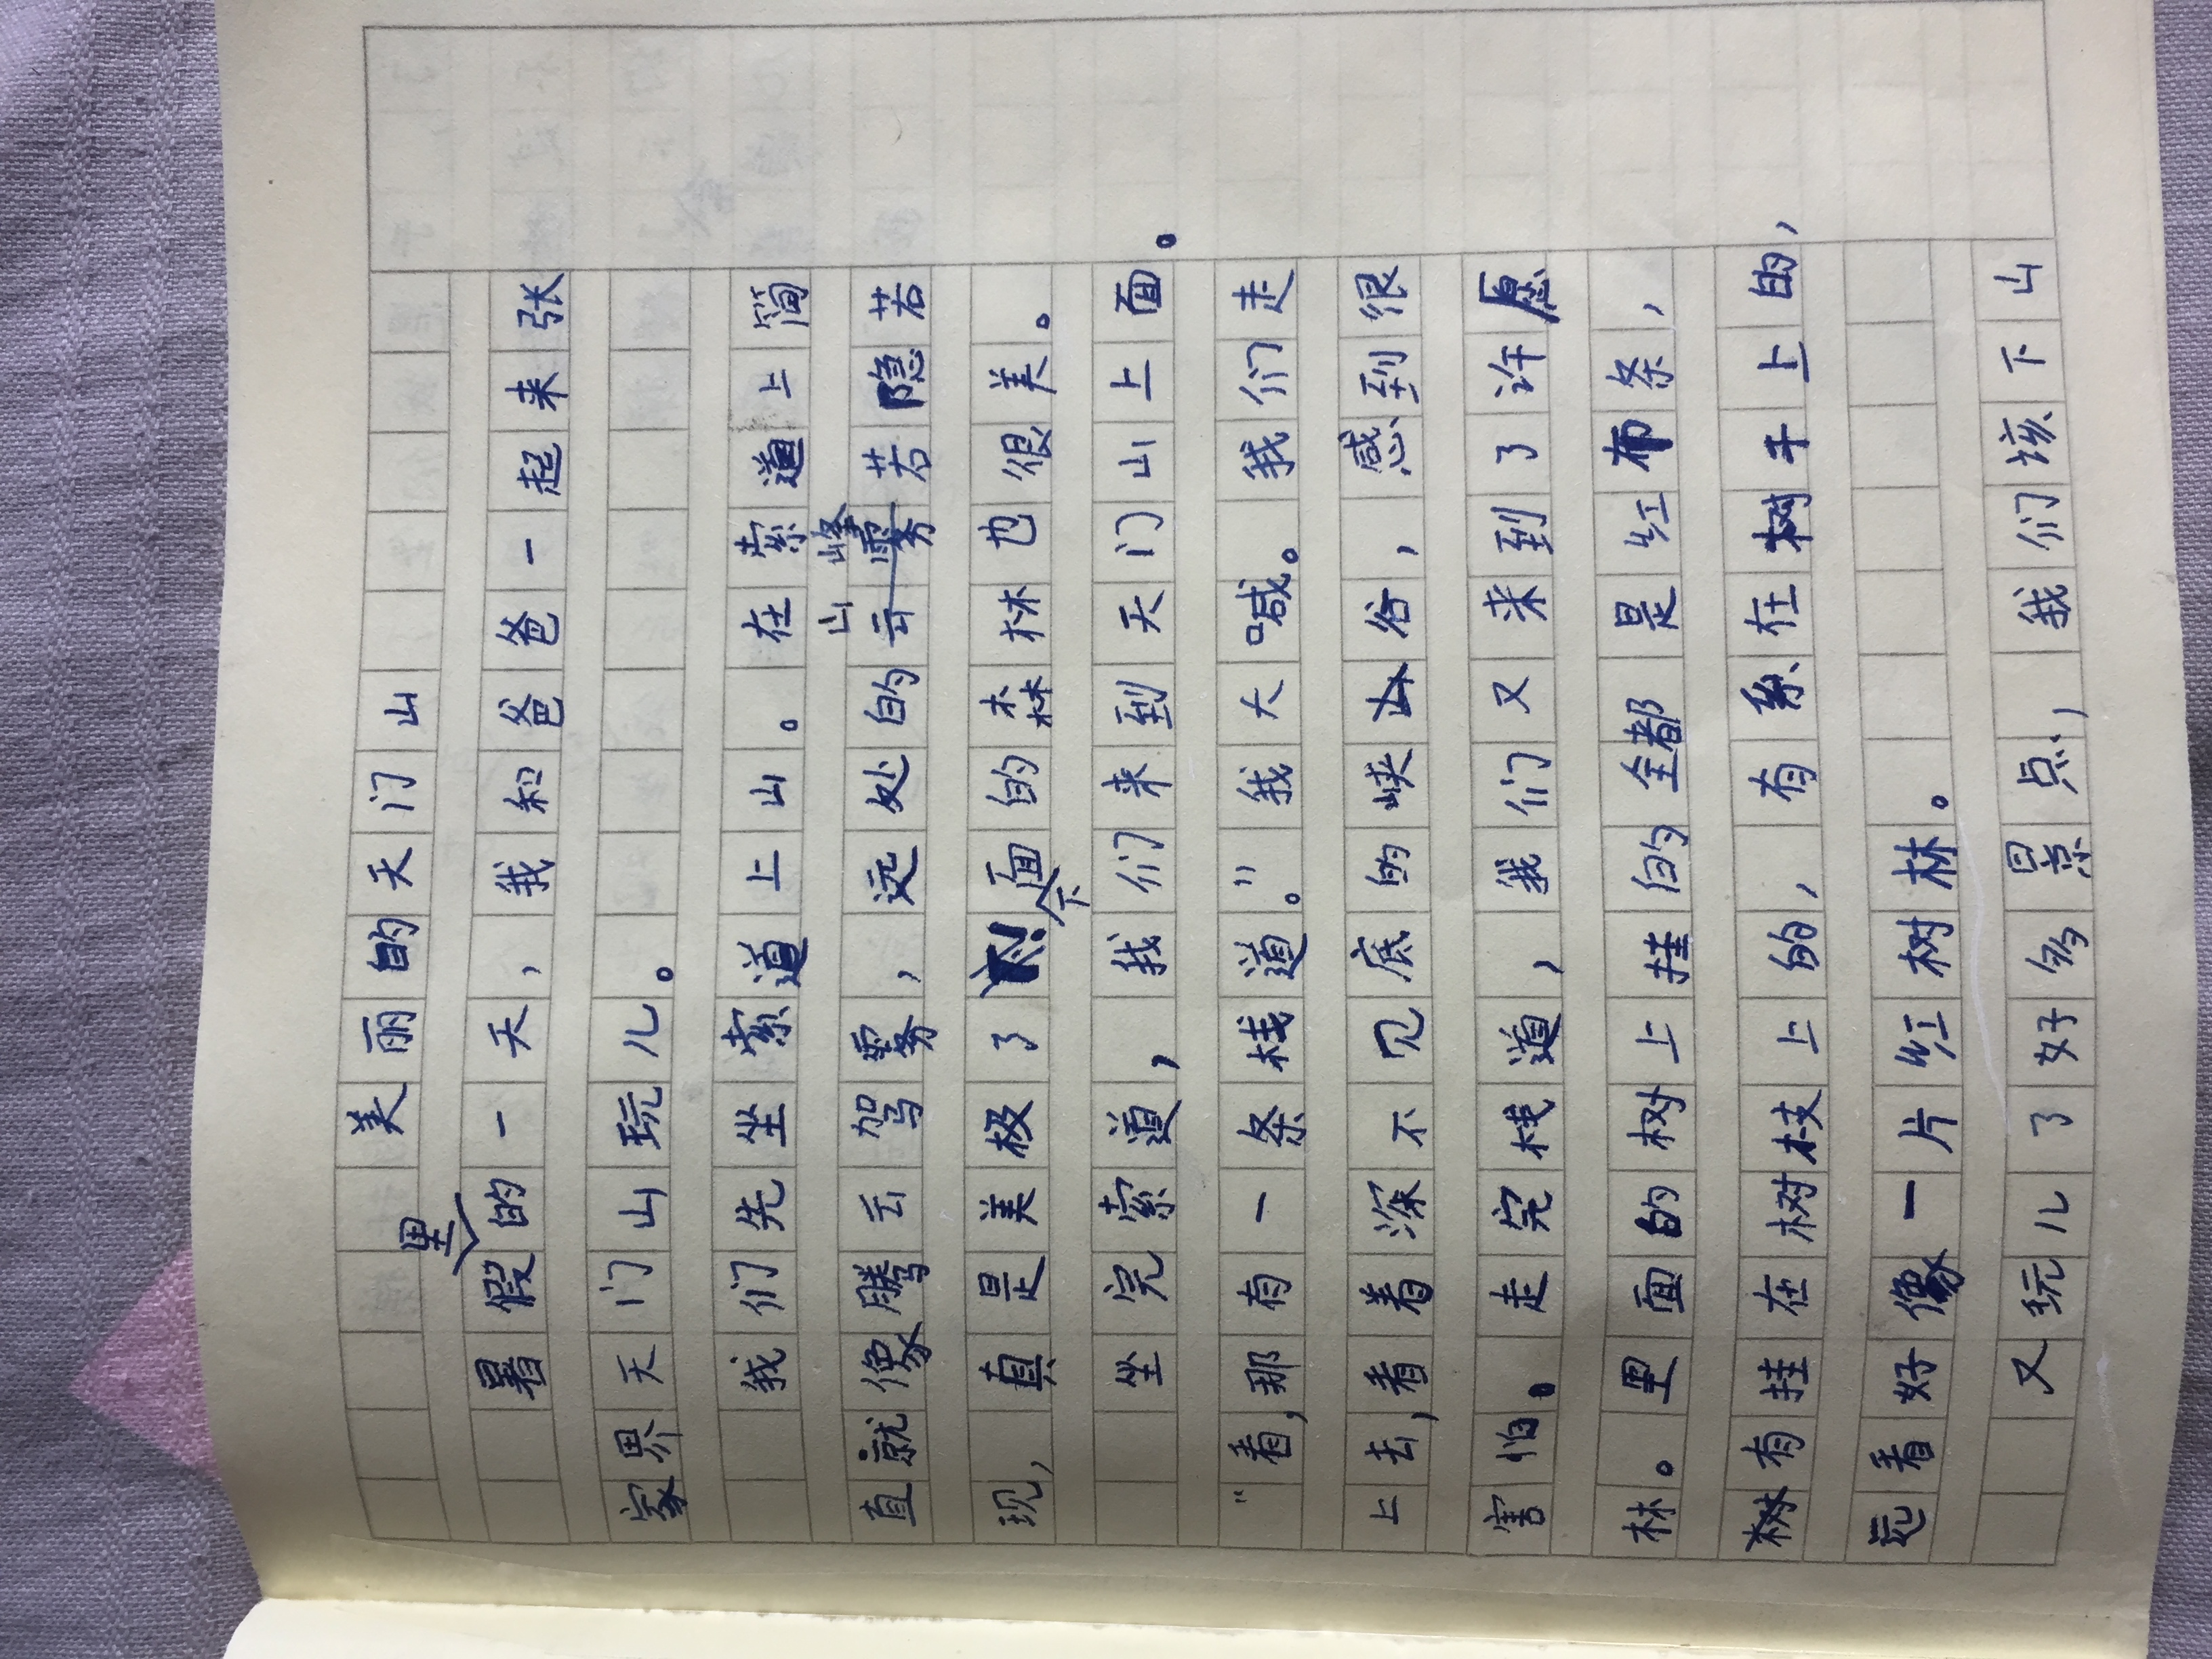 美丽的天门山
暑假里的一天，我和爸爸一起来张
家界天门山玩儿。
我们先坐索道上山。在索道上简
直就像腾云驾雾，远处的山峰若隐若
现，真是美极了！下面的森林也很美。
坐完索道，我们来到天门山上面。
“看，那有一条栈道。”我大喊。我们走
上去，看着深不见底的峡谷，感到很
害怕。走完栈道，我们又来到了许愿
林。里面的树上挂的全都是红布条，
有挂在树枝上的，有系在树干上的，
远看好像一片红树林。
又玩儿了好多景点，我们该下山